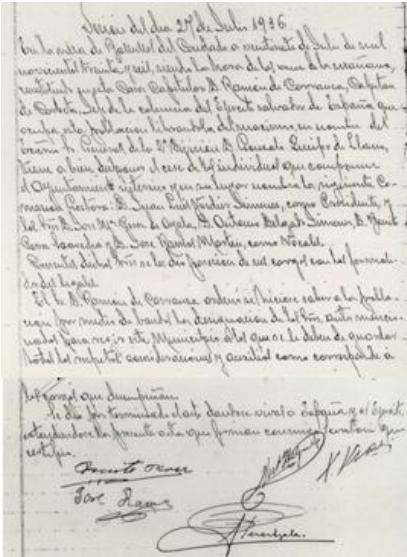 Sesion del dia 27 de Julio 1936
En la de Rafael del Condado a veintisiete de Julio de mil
novecientos treinta y seis, siendo la hora de las once de la mañana,
constituido en esta Casa Capitular D. Ramón de Carranza, Capitan
de Corbeta, Jefe de la columna del Ejercito salvador de España que
ocupa esta poblacion librandola del marxismo, en nombre del
Excmo. Sr. General de la 2ª Division D. Gonzalo Queipo de Llano,
tiene a bien disponer el cese de los individuos que componen
el Ayuntamiento y en su lugar nombra la siguiente Co-
mision Gestora: D. Juan Luis Jimenez, como Presidente, y
los Sres D. Jose Mª de Ayala, D. Antonio Delgado Jimenez, D. Vicente
Saavedra y D. Jose Ramos, como Vocales.
Presentes dichos Sres se les dio posesion de sus cargos con las formali-
dades legales.
El Sr. D. Ramón de Carranza ordenó se hiciese saber a la pobla-
cion por medio de bandos las designacion de los Sres. antes mencio-
nados para regir este Municipio a los que se le deben de guardar
todos los respetos, consideraciones y auxilios como corresponde a
los cargos que desempeñan.
Se dio por terminado el acto dandose vivas a España y al Ejercito,
extendiendose la presente acta que firman conmigo, el Secretario que
certifico.
Vicente
Jose Ramos